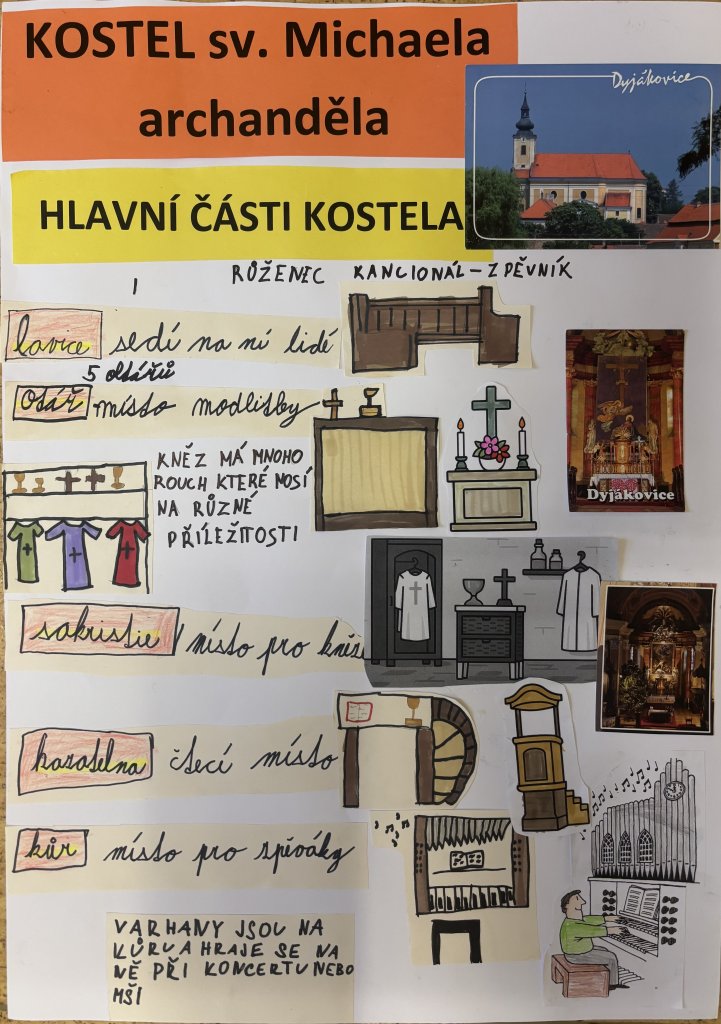 KOSTEL sv. Michaela
archanděla
Dyjákovice
HLAVNÍ ČÁSTI KOSTELA
RŮŽENEC KANCIONÁL-ZPĚVNÍK
lavice sedí na ní lidé
5 oltářů
Otář místo modlitby
KNĚZ MÁ MNOHO
ROUCH KTERÉ NOSÍ
NA RŮZNÉ
PŘÍLEŽITOSTI
Dyjákovice
sakristie místo pro kněze
kazatelna čtecí místo
kůr místo pro zpěváky
VARHANY JSOU NA
KŮRU A HRAJE SE NA
NĚ PŘI KONCERTU NEBO
MŠI